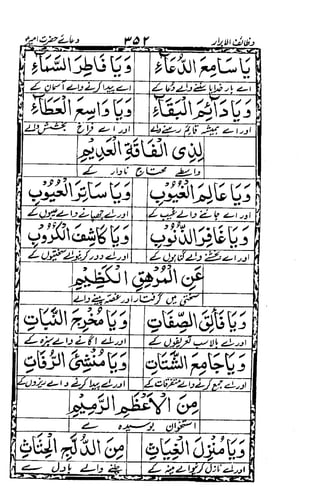 وظائف الابرار ۳۵۲ دعائے حضرت امیرؑ
يَا سَامِعَ الدُّعَاءِ وَيَا فَاطِرَ السَّمَاءِ
اے بار خدایا سننے والے دعا کے اے پیدا کرنے والے آسمان کے
وَيَا دَائِمَ الْبَقَاءِ وَيَا وَاسِعَ الْعَطَاءِ
اور اے ہمیشہ قائم رہنے والے اور اے فراخ بخشش والے
لِذِي الْفَاقَةِ الْعَدِيمِ
واسطے محتاج نادار کے
وَيَا عَالِمَ الْغُيُوبِ وَيَا سَاتِرَ الْعُيُوبِ
اور اے جاننے والے غیب کے اور اے چھپانے والے عیبوں کے
وَيَا غَافِرَ الذُّنُوبِ وَيَا كَاشِفَ الْكُرُوبِ
اور اے بخشنے والے گناہوں کے اور اے دور کرنیوالے سختیوں کے
عَنِ الْمُرْهَقِ الْكَظِيمِ
سختی میں گرفتار اور غصہ پینے والے
وَيَا فَائِقَ الصِّفَاتِ وَيَا مُخْرِجَ النَّبَاتِ
اور اے بالا سب تعریفوں کے اور اے اگانے والے سبزہ کے
وَيَا جَامِعَ الشَّتَاتِ وَيَا مُنْشِئَ الرُّفَاتِ
اور اے جمع کرنے والے متفرقات کے اور اے پیدا کرنے والے ریزوں کے
مِنَ الْأَعْظُمِ الرَّمِيمِ
استخوان بوسیدہ سے
وَيَا مُنْزِلَ الْغِيَاثِ مِنَ الدُّلَّحِ الْحِثَاثِ
اور اے نازل کرنیوالے مینہ کے چلنے والے بادل سے